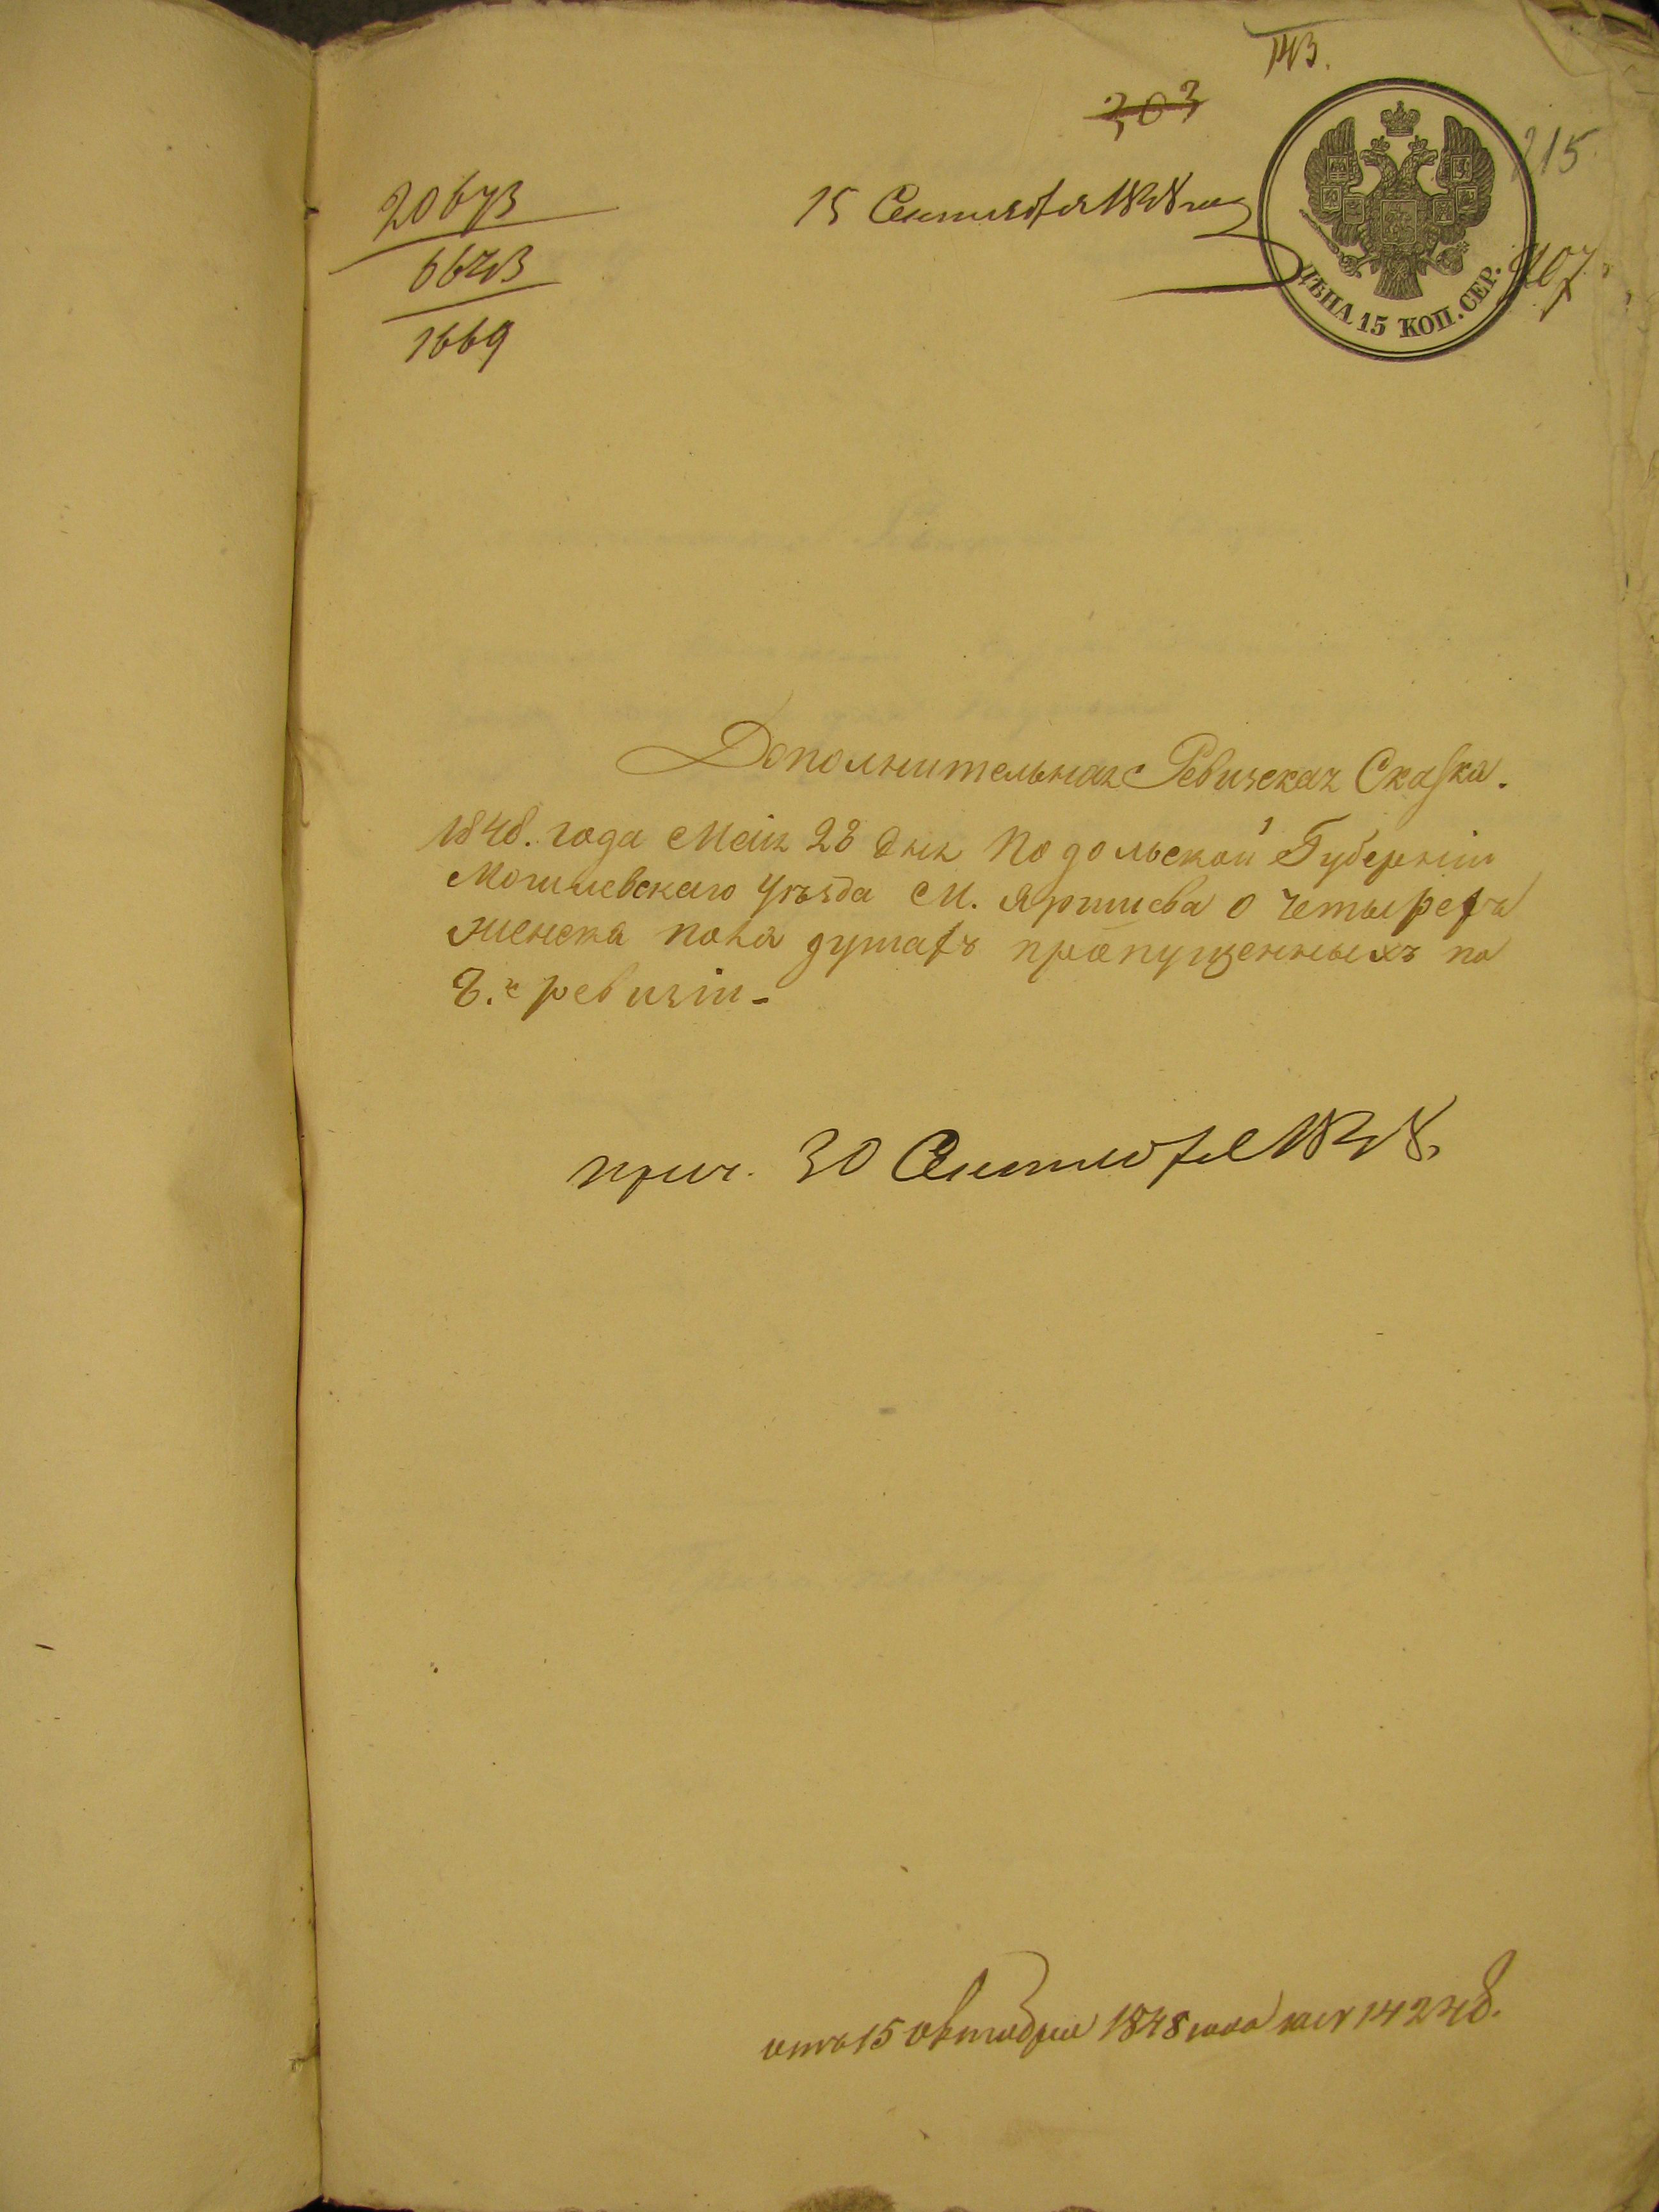 143.
303
215
20673
15 Сентября 1848 года
6643
1669
407
ЦѢНА 15 КОП. СЕР.
Дополнительная Ревизская Сказка.
1848. года Маія 28 дня Подольской Губерніи
Могилевскаго Уѣзда М. Яришева о четырехъ
женска пола душахъ пропущенныхъ по
8.й ревизіи-
прич. 30 Сентября 1848.
отъ 15 октября 1848 года за № 14248.